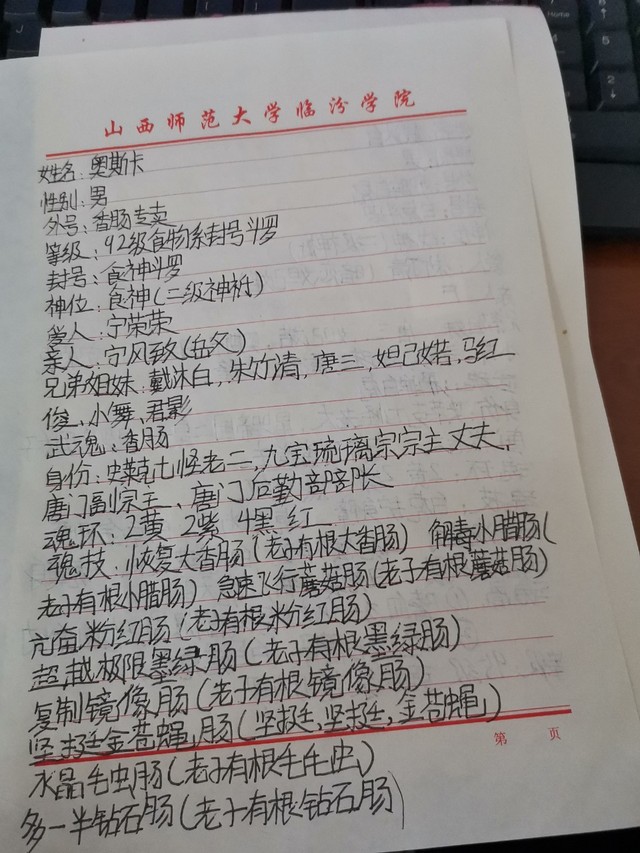 山西师范大学临汾学院
姓名:奥斯卡
性别:男
外号:香肠专卖
等级:92级食物系封号斗罗
封号:食神斗罗
神位:食神(二级神祇)
爱人:宁荣荣
亲人:宁风致(岳父)
兄弟姐妹:戴沐白,朱竹清,唐三,妲己妲若,马红
俊、小舞、君影
武魂:香肠
身份:史莱克七怪老二,九宝琉璃宗宗主丈夫,
唐门副宗主、唐门后勤部部长
魂环:2黄 2紫 4黑 红
魂技:恢复大香肠(老子有根大香肠) 解毒小腊肠(
老子有根小腊肠) 急速飞行蘑菇肠(老子有根蘑菇肠)
亢奋粉红肠(老子有根粉红肠)
超越极限墨绿肠(老子有根墨绿肠)
复制镜像肠(老子有根镜像肠)
坚挺金苍蝇肠(坚挺,坚挺,金苍蝇)
第 页
水晶毛虫肠(老子有根毛毛虫)
多一半钻石肠(老子有根钻石肠)